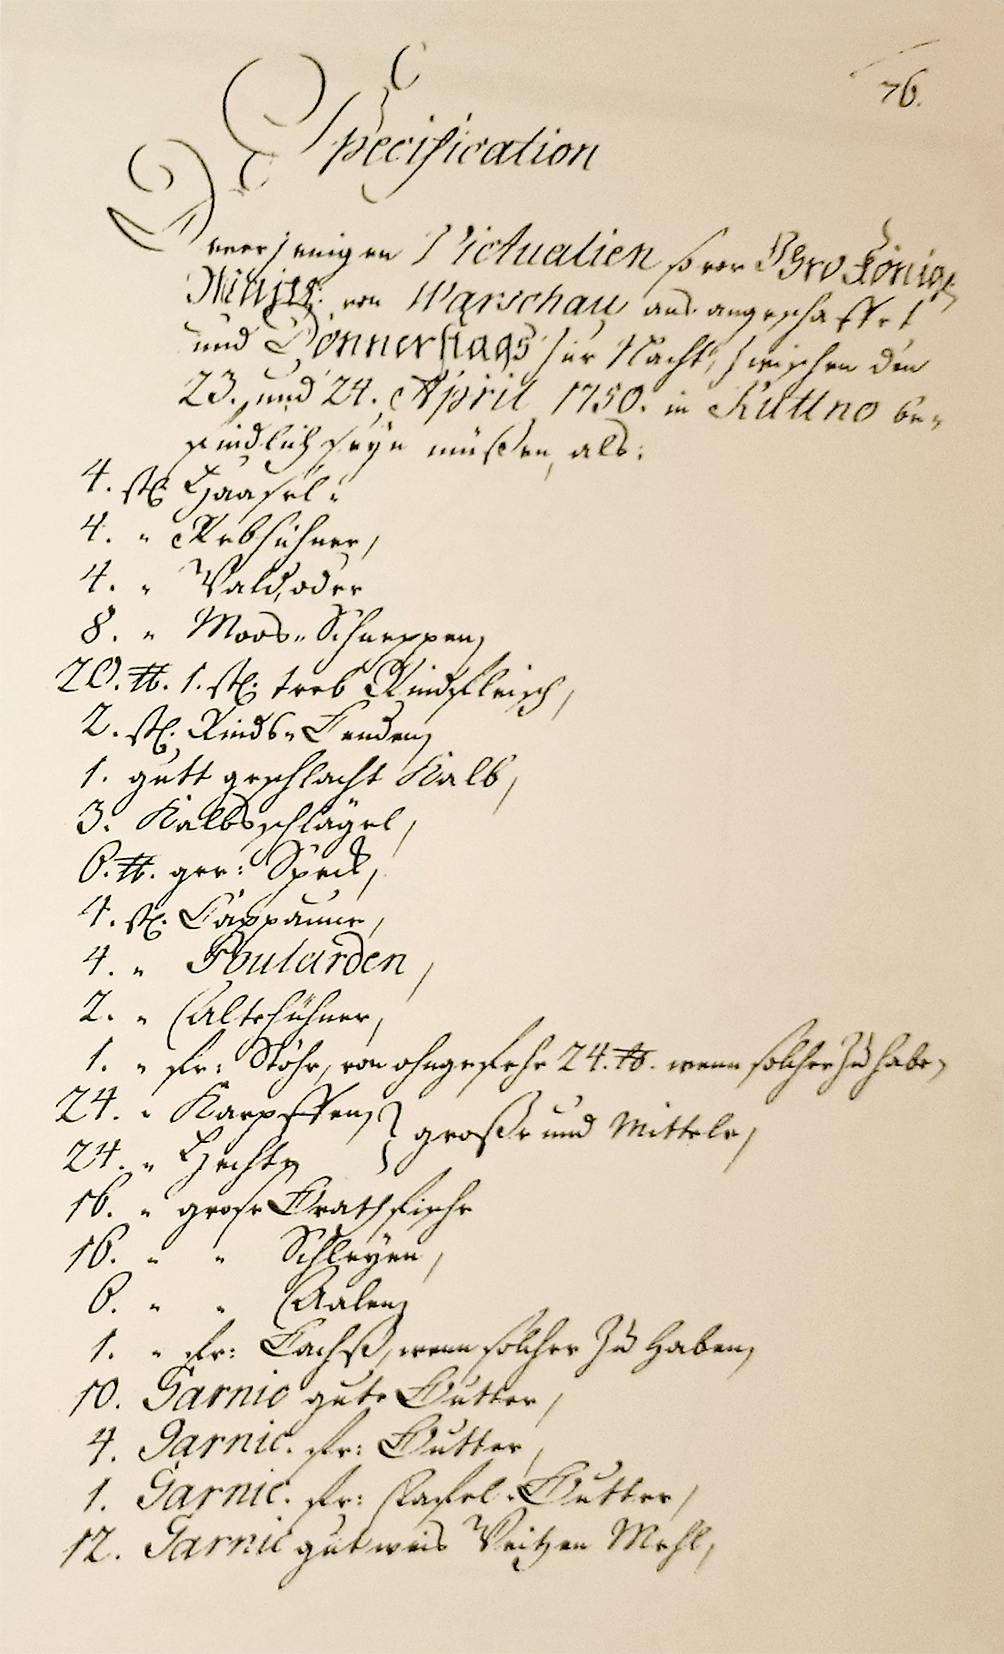 76.
Specification
Dererjenigen Victualien so vor Ihro Königl.
Majest. von Warschau aus angeschaffet
und Donnerstags zur Nacht, zwischen den
23. und 24. April 1750. in Kuttno be-
findlich seyn müßen, als:
4. st. Haasel:
4. " Rebhühner,
4. " Wald, oder
8. " Moos-Schneppen,
20. ℔. 1. st. derb Rindfleisch,
2. st. Rinds-Lenden,
1. gutt geschlacht Kalb,
3. Kalbsschlägel,
6. ℔. ger: Speck,
4. st. Cappaune,
4. " Poularden,
2. " Alte Hühner,
1. " fr: Stöhr, von ohngefehr 24. ℔. wenn solcher zu haben,
24. " Karpffen,
24. " Hechte, } große und Mittele,
16. " große Brathfische
16. " " Schleyen,
6. " " Aalen,
1. " fr: Lachß, wenn solcher zu haben,
10. Garnic gute Butter,
4. Garnic. fr: Butter,
1. Garnic. fr: Tafel-Butter,
12. Garnic gut weis Weitzen Mehl,